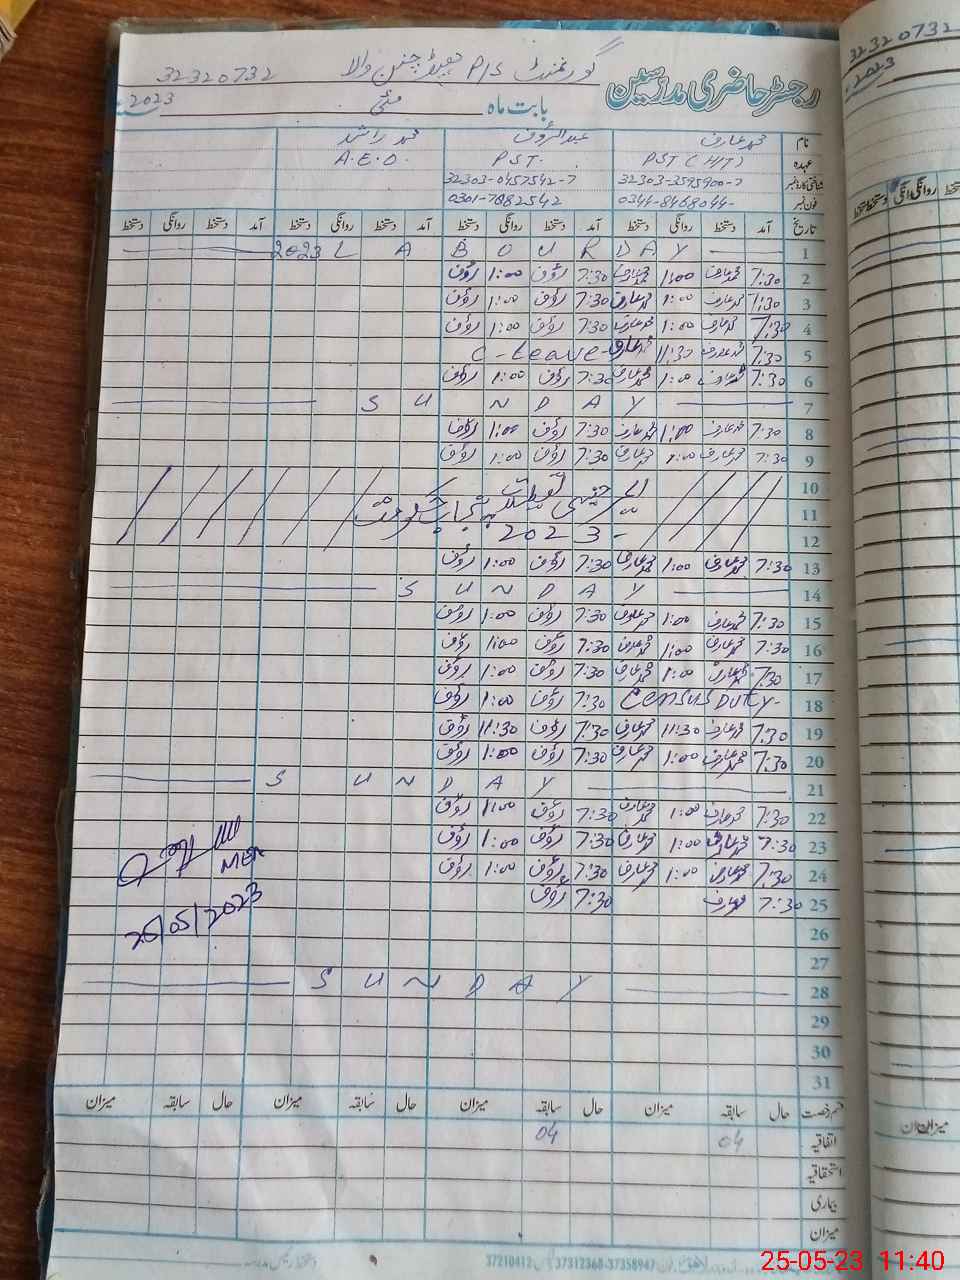 گورنمنٹ P/S چنن والا 32320732
32320732
رجسٹر حاضری مدرسین
بابت ماہ مئی 2023
2023
نام محمد عارف عبدالرؤف محمد راشد
عہدہ PST (H/T) PST. A.E.O.
شناختی کارڈ نمبر 32303-3595900-7 32303-0457542-7
فون نمبر 0344-8468044- 0301-7882542
تاریخ آمد دستخط روانگی دستخط آمد دستخط روانگی دستخط آمد دستخط روانگی دستخط آمد دستخط روانگی دستخط
1 2023 LABOUR DAY
2 7:30 محمد عارف 1:00 محمد عارف 7:30 رؤف 1:00 رؤف
3 7:30 محمد عارف 1:00 محمد عارف 7:30 رؤف 1:00 رؤف
4 7:30 محمد عارف 1:00 محمد عارف 7:30 رؤف 1:00 رؤف
5 7:30 محمد عارف 11:30 محمد عارف C-Leave-
6 7:30 محمد عارف 1:00 محمد عارف 7:30 رؤف 1:00 رؤف
7 SUNDAY
8 7:30 محمد عارف 1:00 محمد عارف 7:30 رؤف 1:00 رؤف
9 7:30 محمد عارف 1:00 محمد عارف 7:30 رؤف 1:00 رؤف
10 ایمرجنسی تعطیلات
11 پنجاب حکومت
12 2023-
13 7:30 محمد عارف 1:00 محمد عارف 7:30 رؤف 1:00 رؤف
14 SUNDAY
15 7:30 محمد عارف 1:00 محمد عارف 7:30 رؤف 1:00 رؤف
16 7:30 محمد عارف 1:00 محمد عارف 7:30 رؤف 1:00 رؤف
17 7:30 محمد عارف 1:00 محمد عارف 7:30 رؤف 1:00 رؤف
18 Census Duty- 7:30 رؤف 1:00 رؤف
19 7:30 محمد عارف 11:30 محمد عارف 7:30 رؤف 11:30 رؤف
20 7:30 محمد عارف 1:00 محمد عارف 7:30 رؤف 1:00 رؤف
21 SUNDAY
22 7:30 محمد عارف 1:00 محمد عارف 7:30 رؤف 1:00 رؤف
23 7:30 محمد عارف 1:00 محمد عارف 7:30 رؤف 1:00 رؤف
24 7:30 محمد عارف 1:00 محمد عارف 7:30 رؤف 1:00 رؤف
25 7:30 محمد عارف 7:30 رؤف
MEA
25/05/2023
26
27
28 SUNDAY
29
30
31
قسم رخصت حال سابقہ میزان حال سابقہ میزان حال سابقہ میزان حال سابقہ میزان
اتفاقیہ 04 04
استحقاقیہ
بیماری
میزان
میزان
37312368-37358947 37210412
25-05-23 11:40